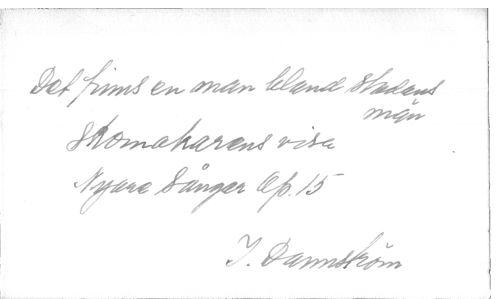 Det finns en man bland stadens
män
Skomakarens visa
Nyare Sånger Op. 15
J. Dannström